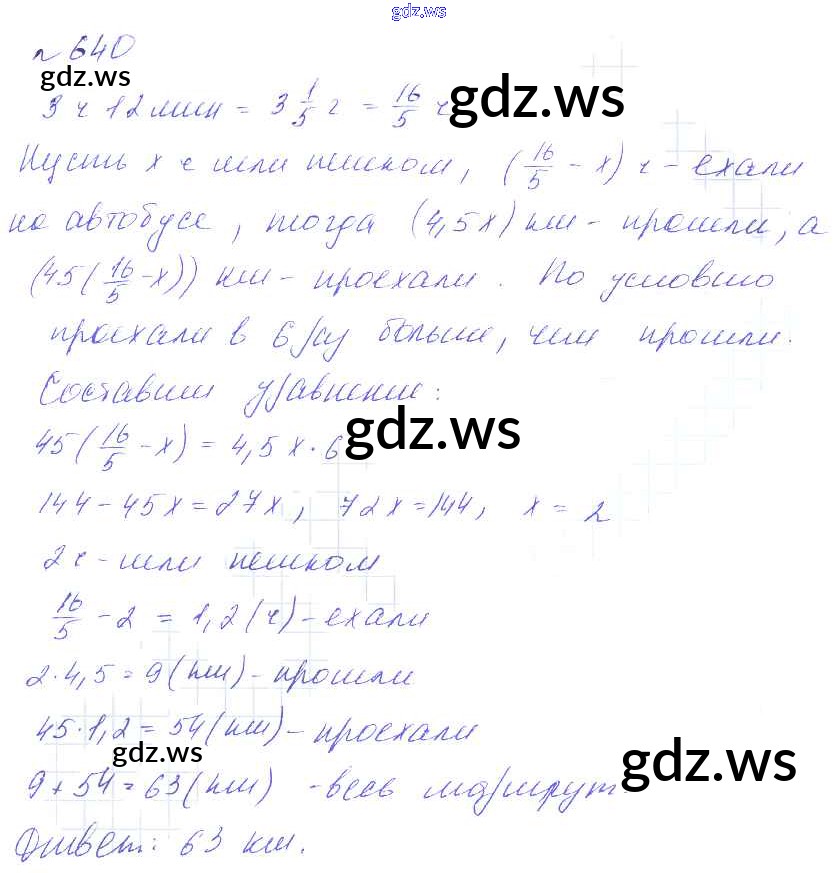 gdz.ws
№ 640
gdz.ws
3 ч 12 мин = 3 1/5 ч = 16/5 ч
gdz.ws
Пусть x ч шли пешком, (16/5 - x) ч - ехали
на автобусе, тогда (4,5x) км - прошли, а
(45(16/5 - x)) км - проехали. По условию
проехали в 6 р/у больше, чем прошли.
Составим уравнение:
45(16/5 - x) = 4,5x · 6
gdz.ws
144 - 45x = 27x, 72x = 144, x = 2
2 ч - шли пешком
16/5 - 2 = 1,2 (ч) - ехали
2 · 4,5 = 9 (км) - прошли
45 · 1,2 = 54 (км) - проехали
gdz.ws
gdz.ws
9 + 54 = 63 (км) - весь маршрут.
Ответ: 63 км.